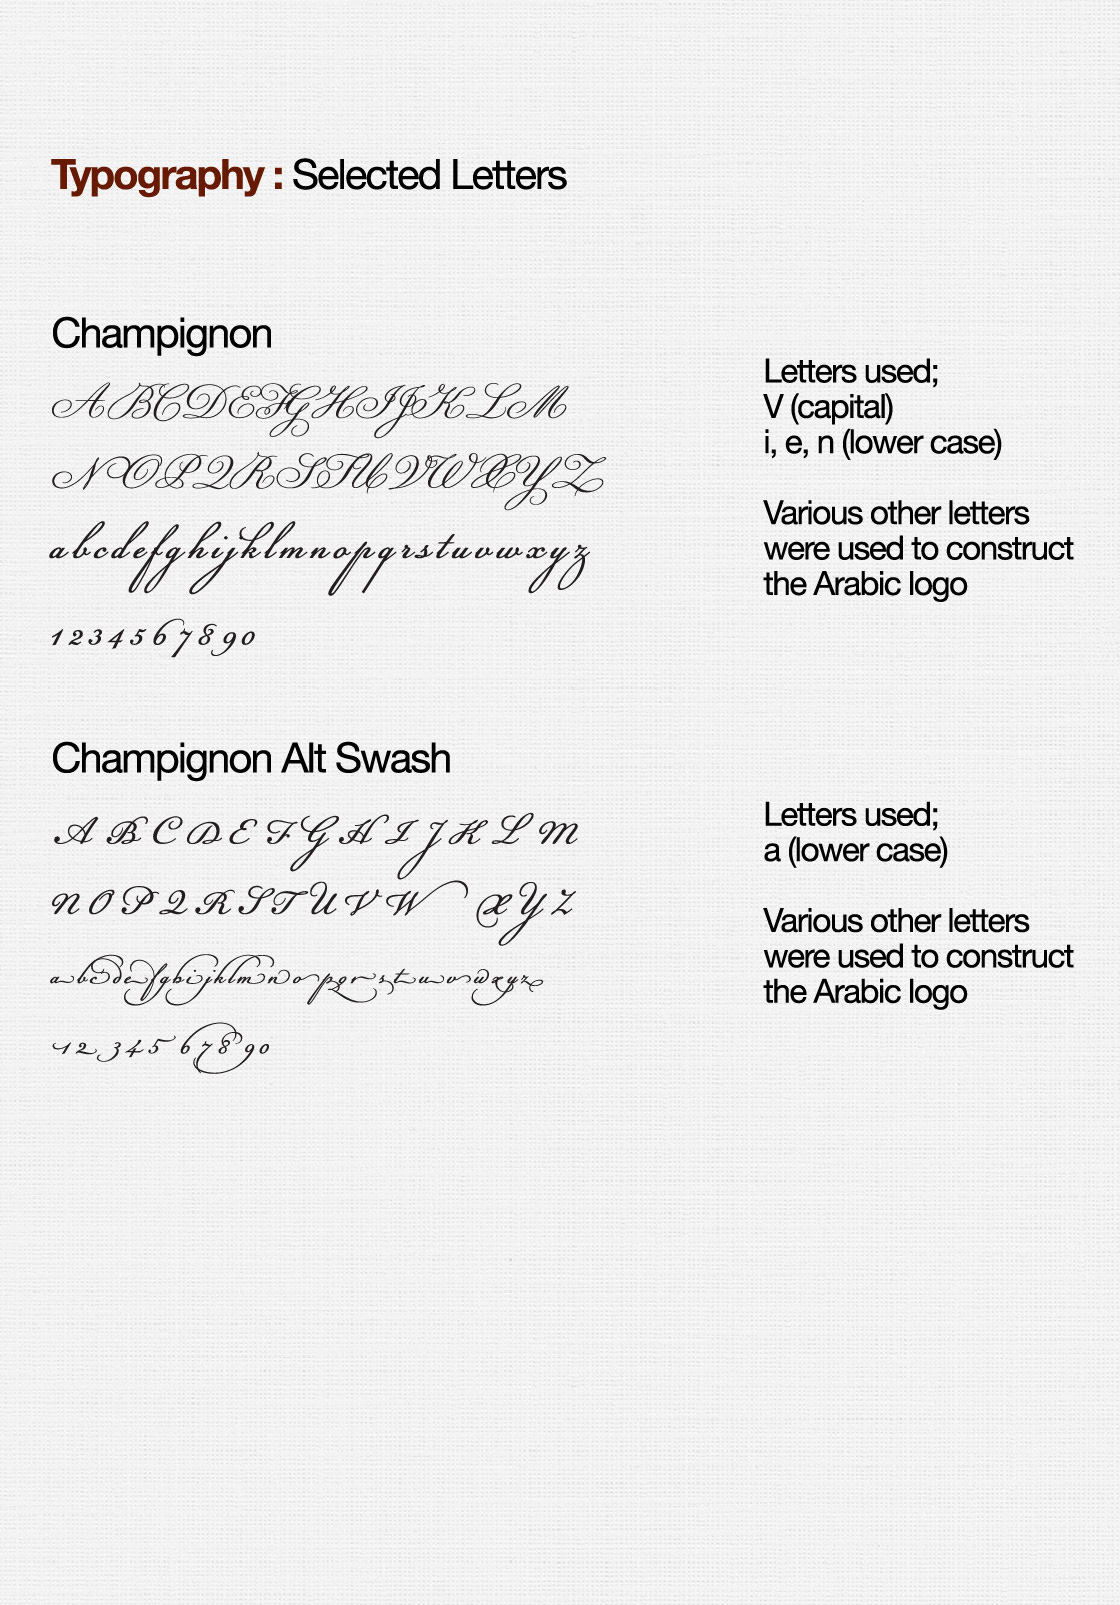 Typography : Selected Letters
Champignon
ABCDEFGHIJKLM
NOPQRSTUVWXYZ
abcdefghijklmnopqrstuvwxyz
1234567890
Letters used;
V (capital)
i, e, n (lower case)
Various other letters
were used to construct
the Arabic logo
Champignon Alt Swash
A B C D E F G H I J K L M
N O P Q R S T U V W X Y Z
abcdefghijklmnopqrstuvwxyz
1234567890
Letters used;
a (lower case)
Various other letters
were used to construct
the Arabic logo